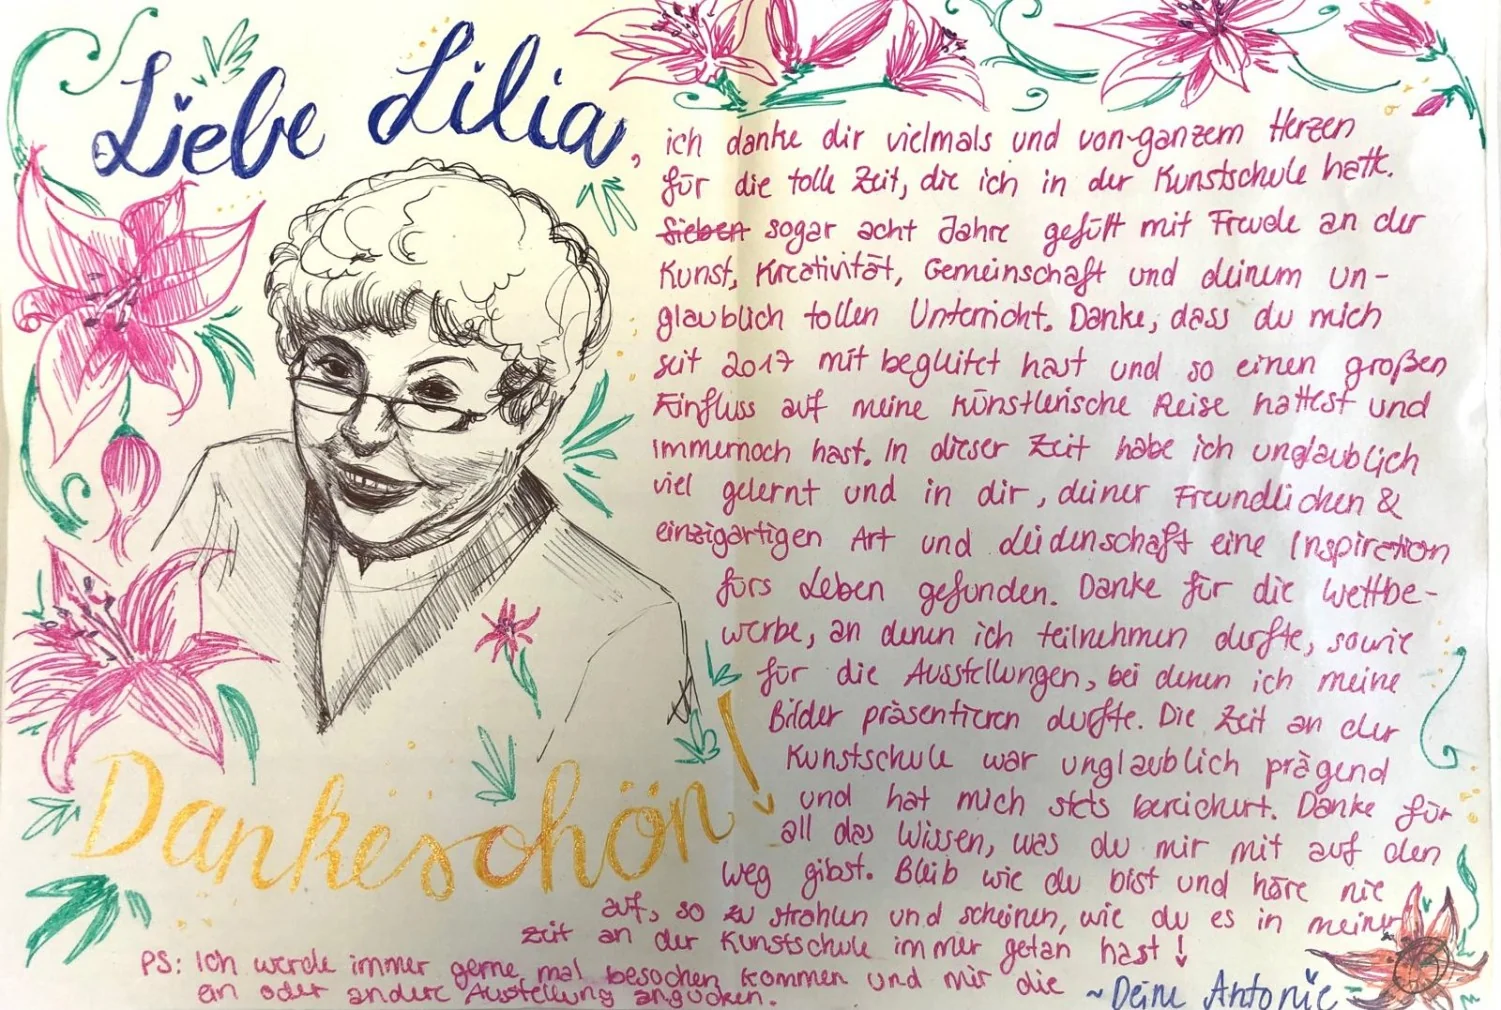 Liebe Lilia,
ich danke dir vielmals und von ganzem Herzen
für die tolle Zeit, die ich in der Kunstschule hatte.
Sieben sogar acht Jahre gefüllt mit Freude an der
Kunst, Kreativität, Gemeinschaft und deinem un-
glaublich tollen Unterricht. Danke, dass du mich
seit 2017 mit begleitet hast und so einen großen
Einfluss auf meine künstlerische Reise hattest und
immernoch hast. In dieser Zeit habe ich unglaublich
viel gelernt und in dir, deiner Freundlichen &
einzigartigen Art und Leidenschaft eine Inspiration
fürs Leben gefunden. Danke für die Wettbe-
werbe, an denen ich teilnehmen durfte, sowie
für die Ausstellungen, bei denen ich meine
Bilder präsentieren durfte. Die Zeit an der
Kunstschule war unglaublich prägend
und hat mich stets bereichert. Danke für
all das Wissen, was du mir mit auf den
Weg gibst. Bleib wie du bist und höre nie
auf, so zu strahlen und scheinen, wie du es in meiner
Zeit an der Kunstschule immer getan hast!
Dankeschön!
PS: Ich werde immer gerne mal besuchen kommen und mir die
ein oder andere Ausstellung angucken.
~Deine Antonie